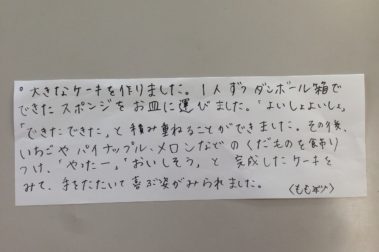 °大きなケーキを作りました。1人ずつダンボール箱で
できたスポンジをお皿に運びました。「よいしょよいしょ」
「できたできた」と積み重ねることができました。その後、
いちごやパイナップル、メロンなどのくだものを飾り
つけ、「やったー」「おいしそう」と完成したケーキを
みて、手をたたいて喜ぶ姿がみられました。